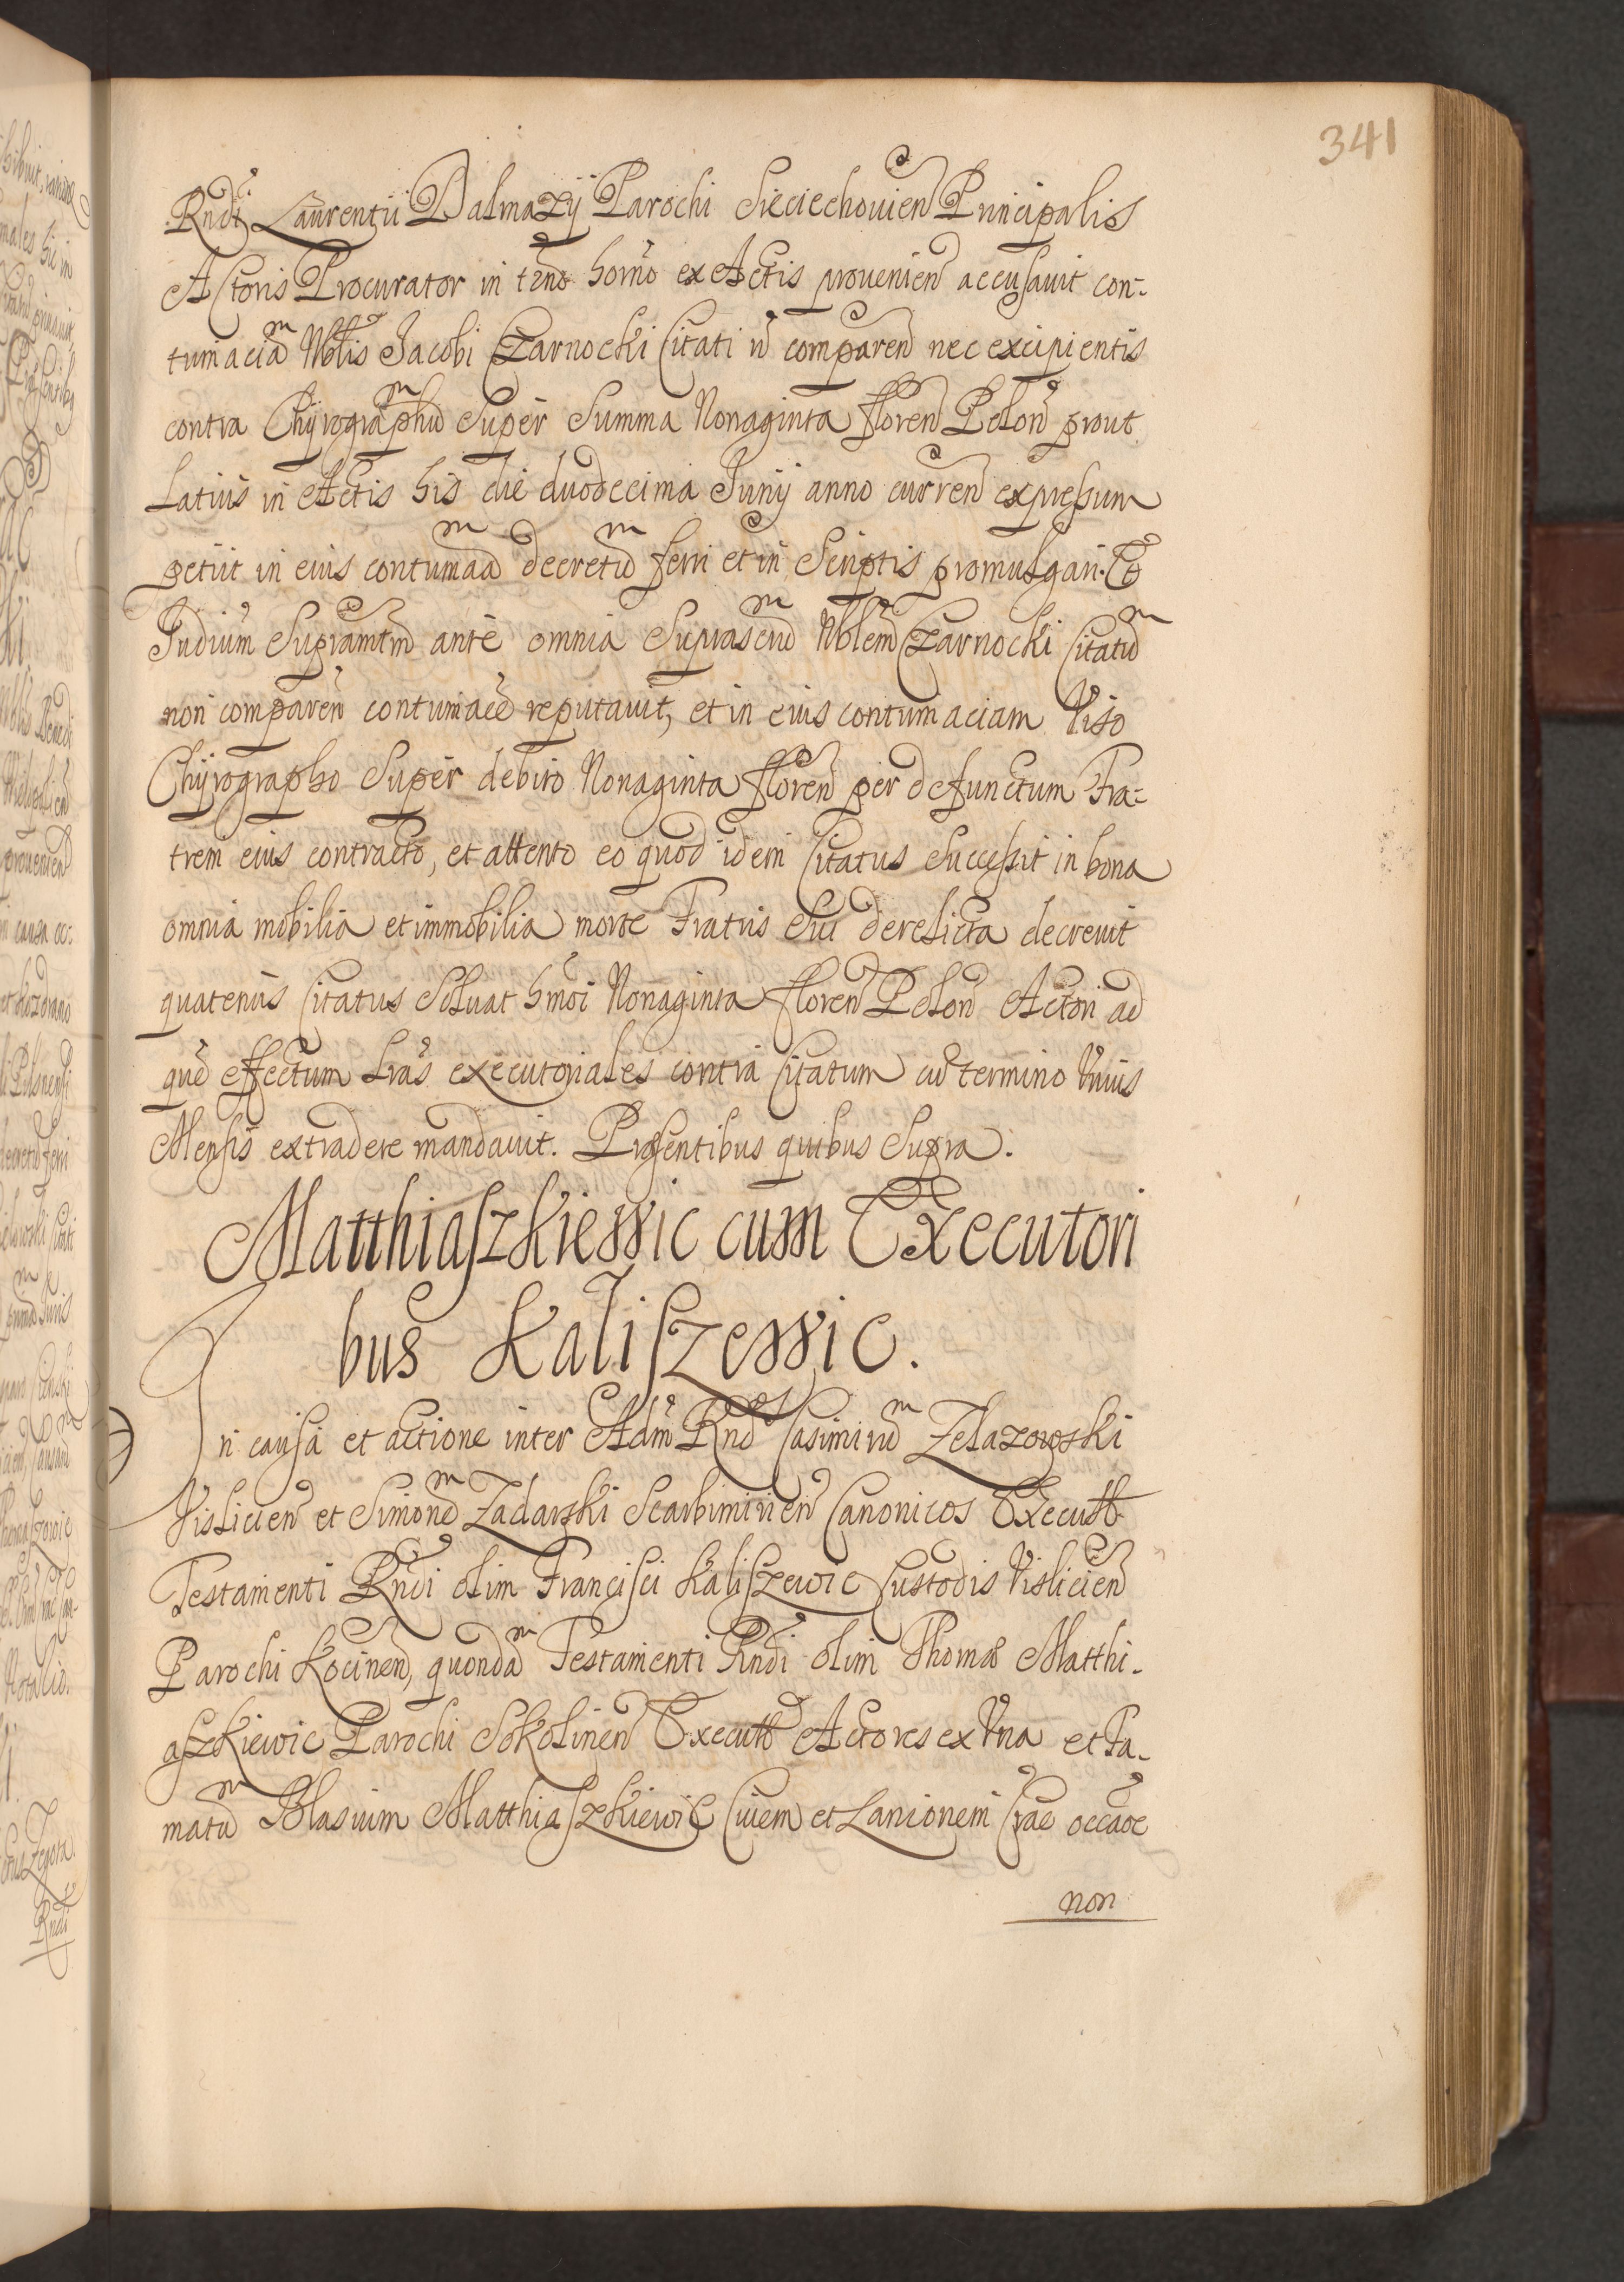 341
Rndi Laurentii Dalmazÿ Parochi Sieciechouien Principalis
Actoris Procurator in tmo horno ex Actis prouenien accusauit con-
tumaciam Nblis Jacobi Czarnocki Citati n comparen nec excipientis
contra Chÿrographum Super Summa Nonaginta floren Polon prout
Latius in Actis his die duodecima Junÿ anno curren expressum
petiit in eius contumaciam decretum ferri et in Scriptis promulgari. Et
Judium Supramtm ante omnia Suprascrm Nblem Czarnocki Citatum
non comparen contumacem reputauit, et in eius contumaciam Viso
Chÿrographo Super debito Nonaginta floren per defunctum Fra-
trem eius contracto, et attento eo quod idem Citatus Successit in bona
omnia mobilia et immobilia morte Fratris Sui derelicta decreuit
quatenus Citatus Soluat hmoi Nonaginta floren Polon Actori ad
quem effectum Lras executoriales contra Citatum cum termino Vnius
Mensis extradere mandauit. Præsentibus quibus Supra.
Matthiaszkiewic cum Executori
bus Kaliszewic.
In causa et actione inter Adm Rndos Casimirum Zelazowski
Vislicien et Simonem Zadarski Scarbimirien Canonicos Executt
Testamenti Rndi olim Francisci Kaliszewic Custodis Vislicien
Parochi Kocinen, quondam Testamenti Rndi olim Thomæ Matthi-
aszkiewic Parochi Sokolinen Executt Actores ex Vna et Fa-
matum Blasium Matthiaszkiewic Ciuem et Lanionem Crac occaoe
non